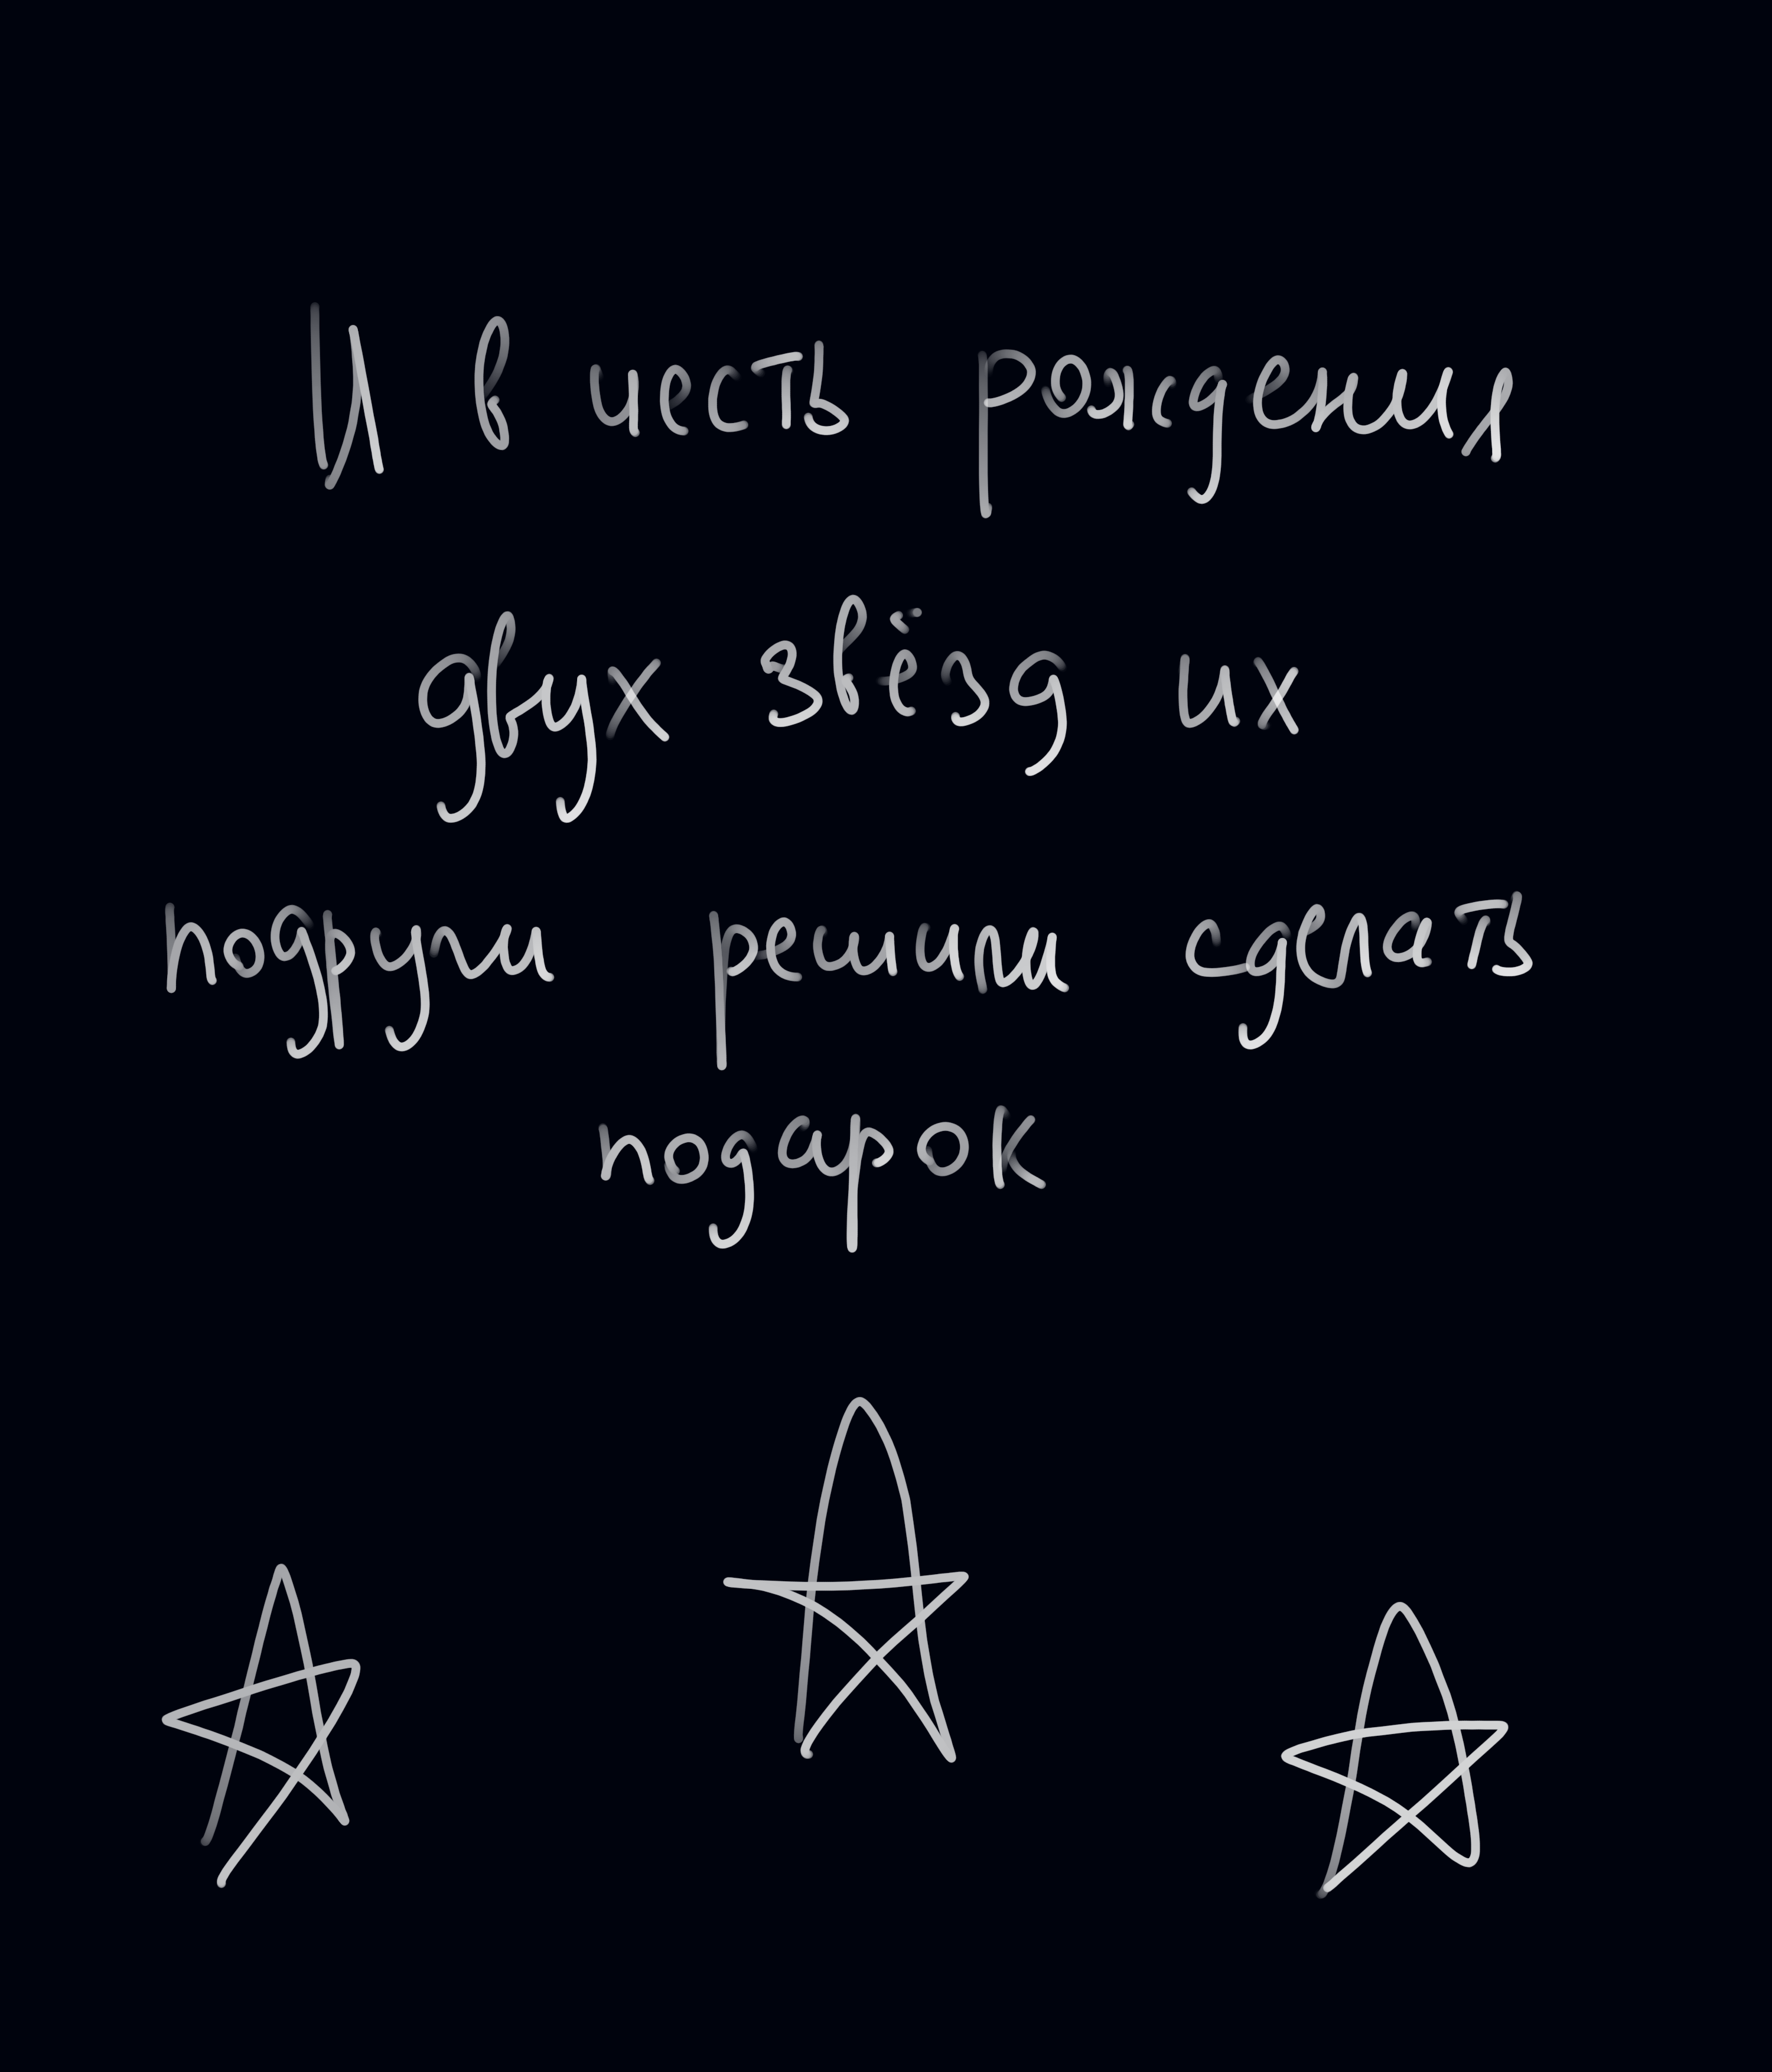 И в честь рождения
двух звёзд их
подруги решили сделать
подарок